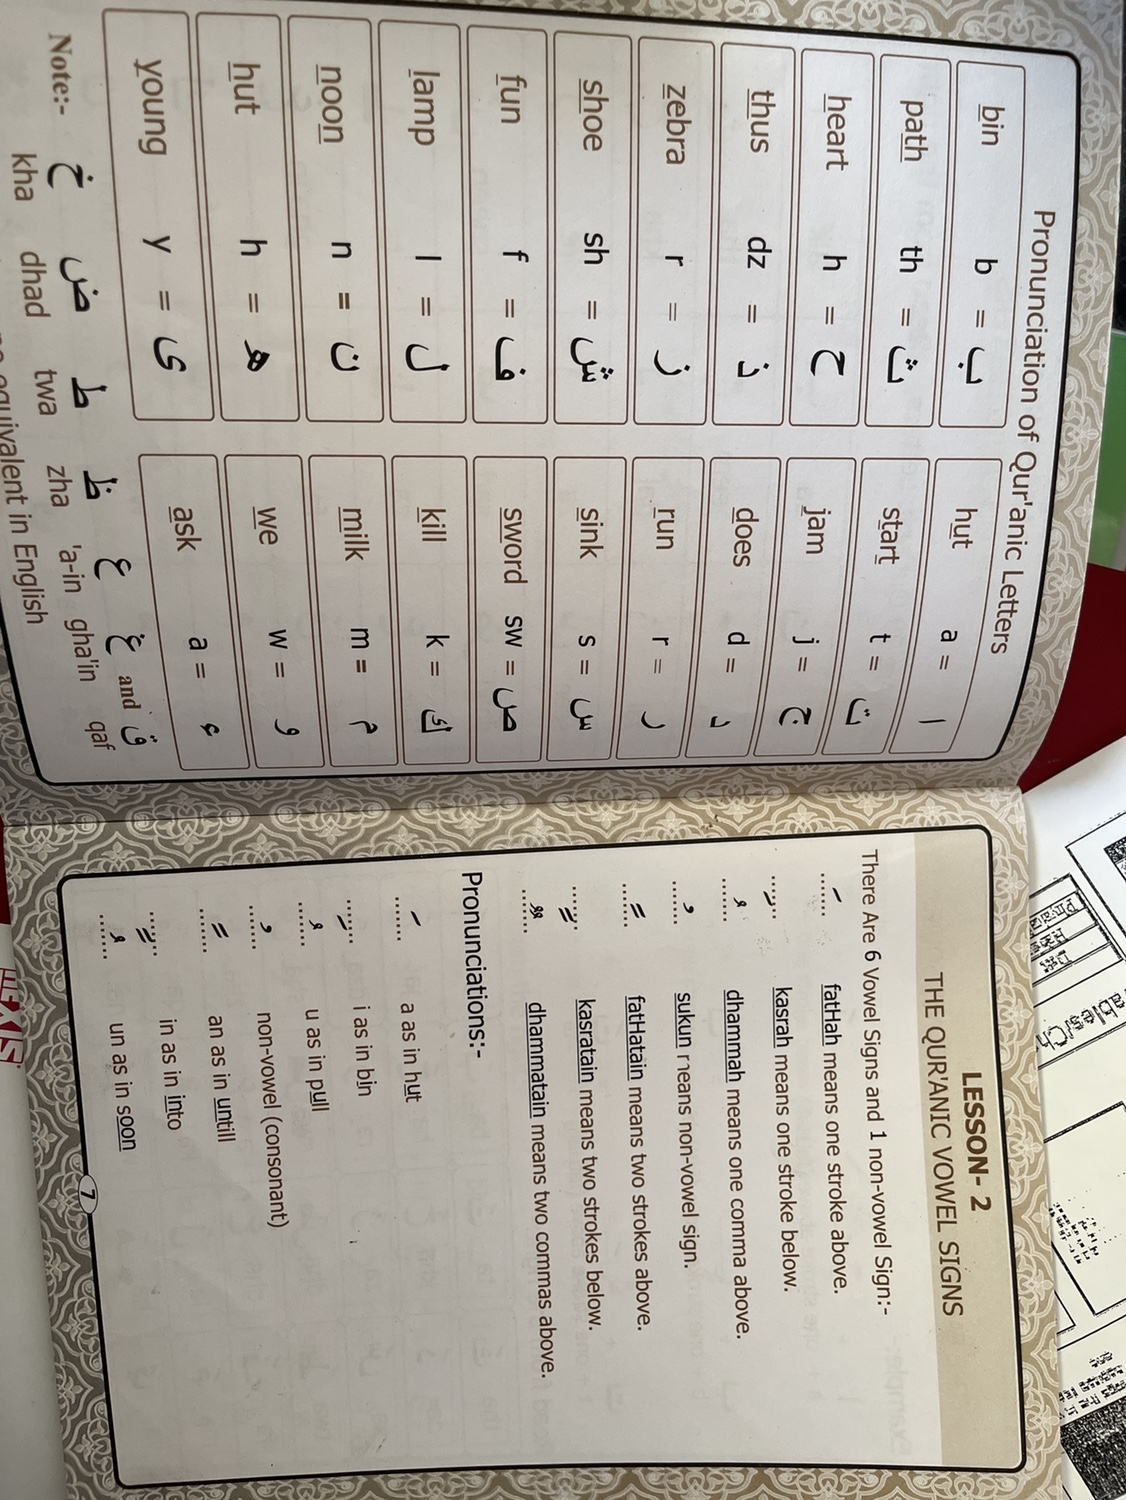 Pronunciation of Qur'anic Letters
bin b = ب
hut a = ا
path th = ث
start t = ت
heart h = ح
jam j = ج
thus dz = ذ
does d = د
zebra r = ز
run r = ر
shoe sh = ش
sink s = س
fun f = ف
sword sw = ص
lamp l = ل
kill k = ك
noon n = ن
milk m = م
hut h = ه
we w = و
young y = ى
ask a = ء
Note:- خ ض ط ظ ع غ and ق
kha dhad twa zha 'a-in gha'in qaf
equivalent in English
LESSON- 2
THE QUR'ANIC VOWEL SIGNS
There Are 6 Vowel Signs and 1 non-vowel Sign:-
fatHah means one stroke above.
kasrah means one stroke below.
dhammah means one comma above.
sukun means non-vowel sign.
fatHatain means two strokes above.
kasratain means two strokes below.
dhammatain means two commas above.
Pronunciations:-
a as in hut
i as in bin
u as in pull
non-vowel (consonant)
an as in untill
in as in into
un as in soon
7